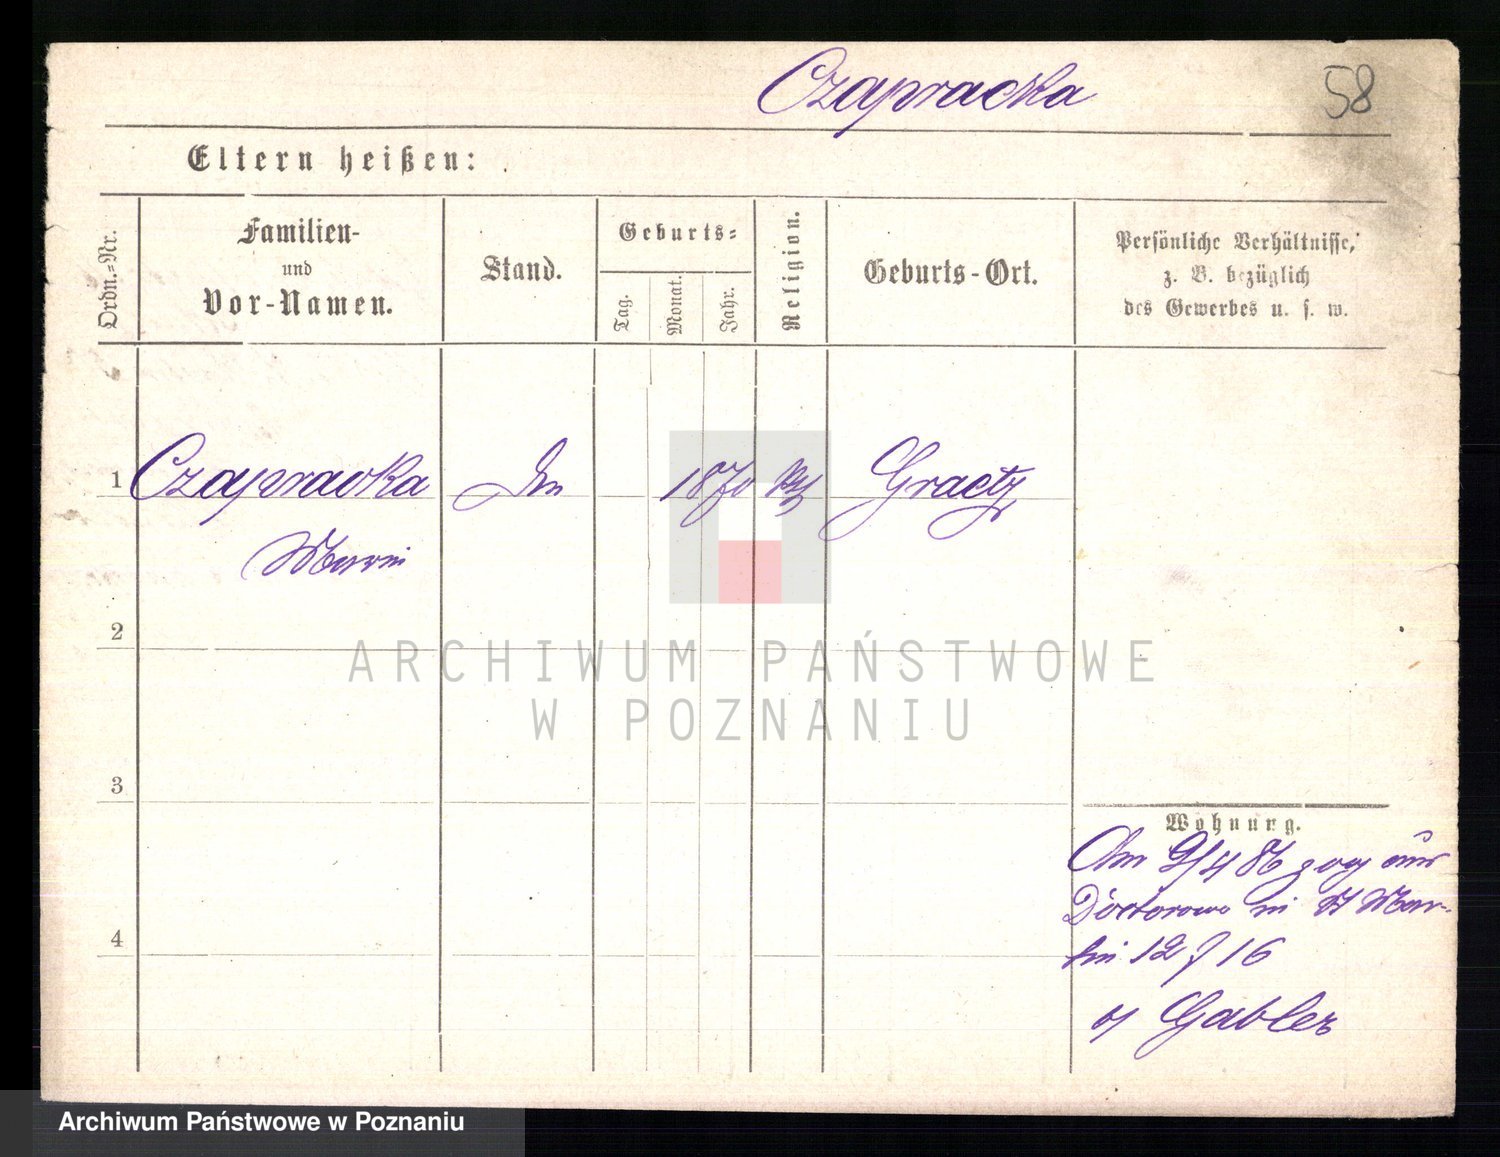 Czapracka 58
Eltern heißen:
Ordn.=Nr.
Familien-
und
Vor-Namen.
Stand.
Geburts=
Tag.
Monat.
Jahr.
Religion.
Geburts-Ort.
Persönliche Verhältnisse,
z. B. bezüglich
des Gewerbes u. s. w.
1 Czapracka 1870 Graetz
2
3
4
Wohnung.
9/4 86 zog aus
Doctorowo in St Mar-
tin 12 / 16
Gabler
ARCHIWUM PAŃSTWOWE
W POZNANIU
Archiwum Państwowe w Poznaniu